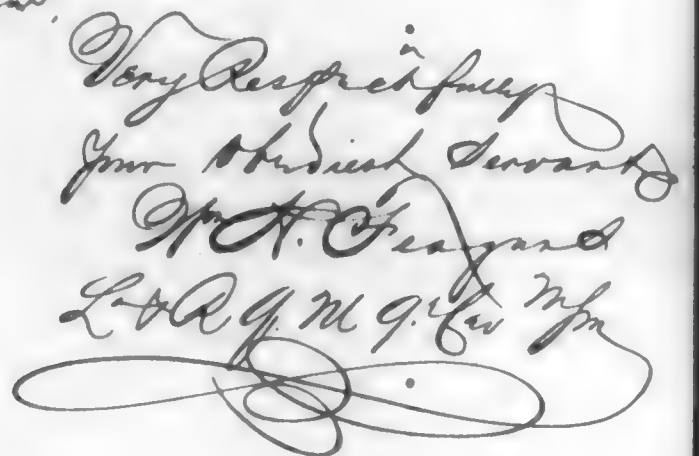 Very Respectfully
Your Obedient Servant
Wm H.
Lt & R Q. M 9. Cav M